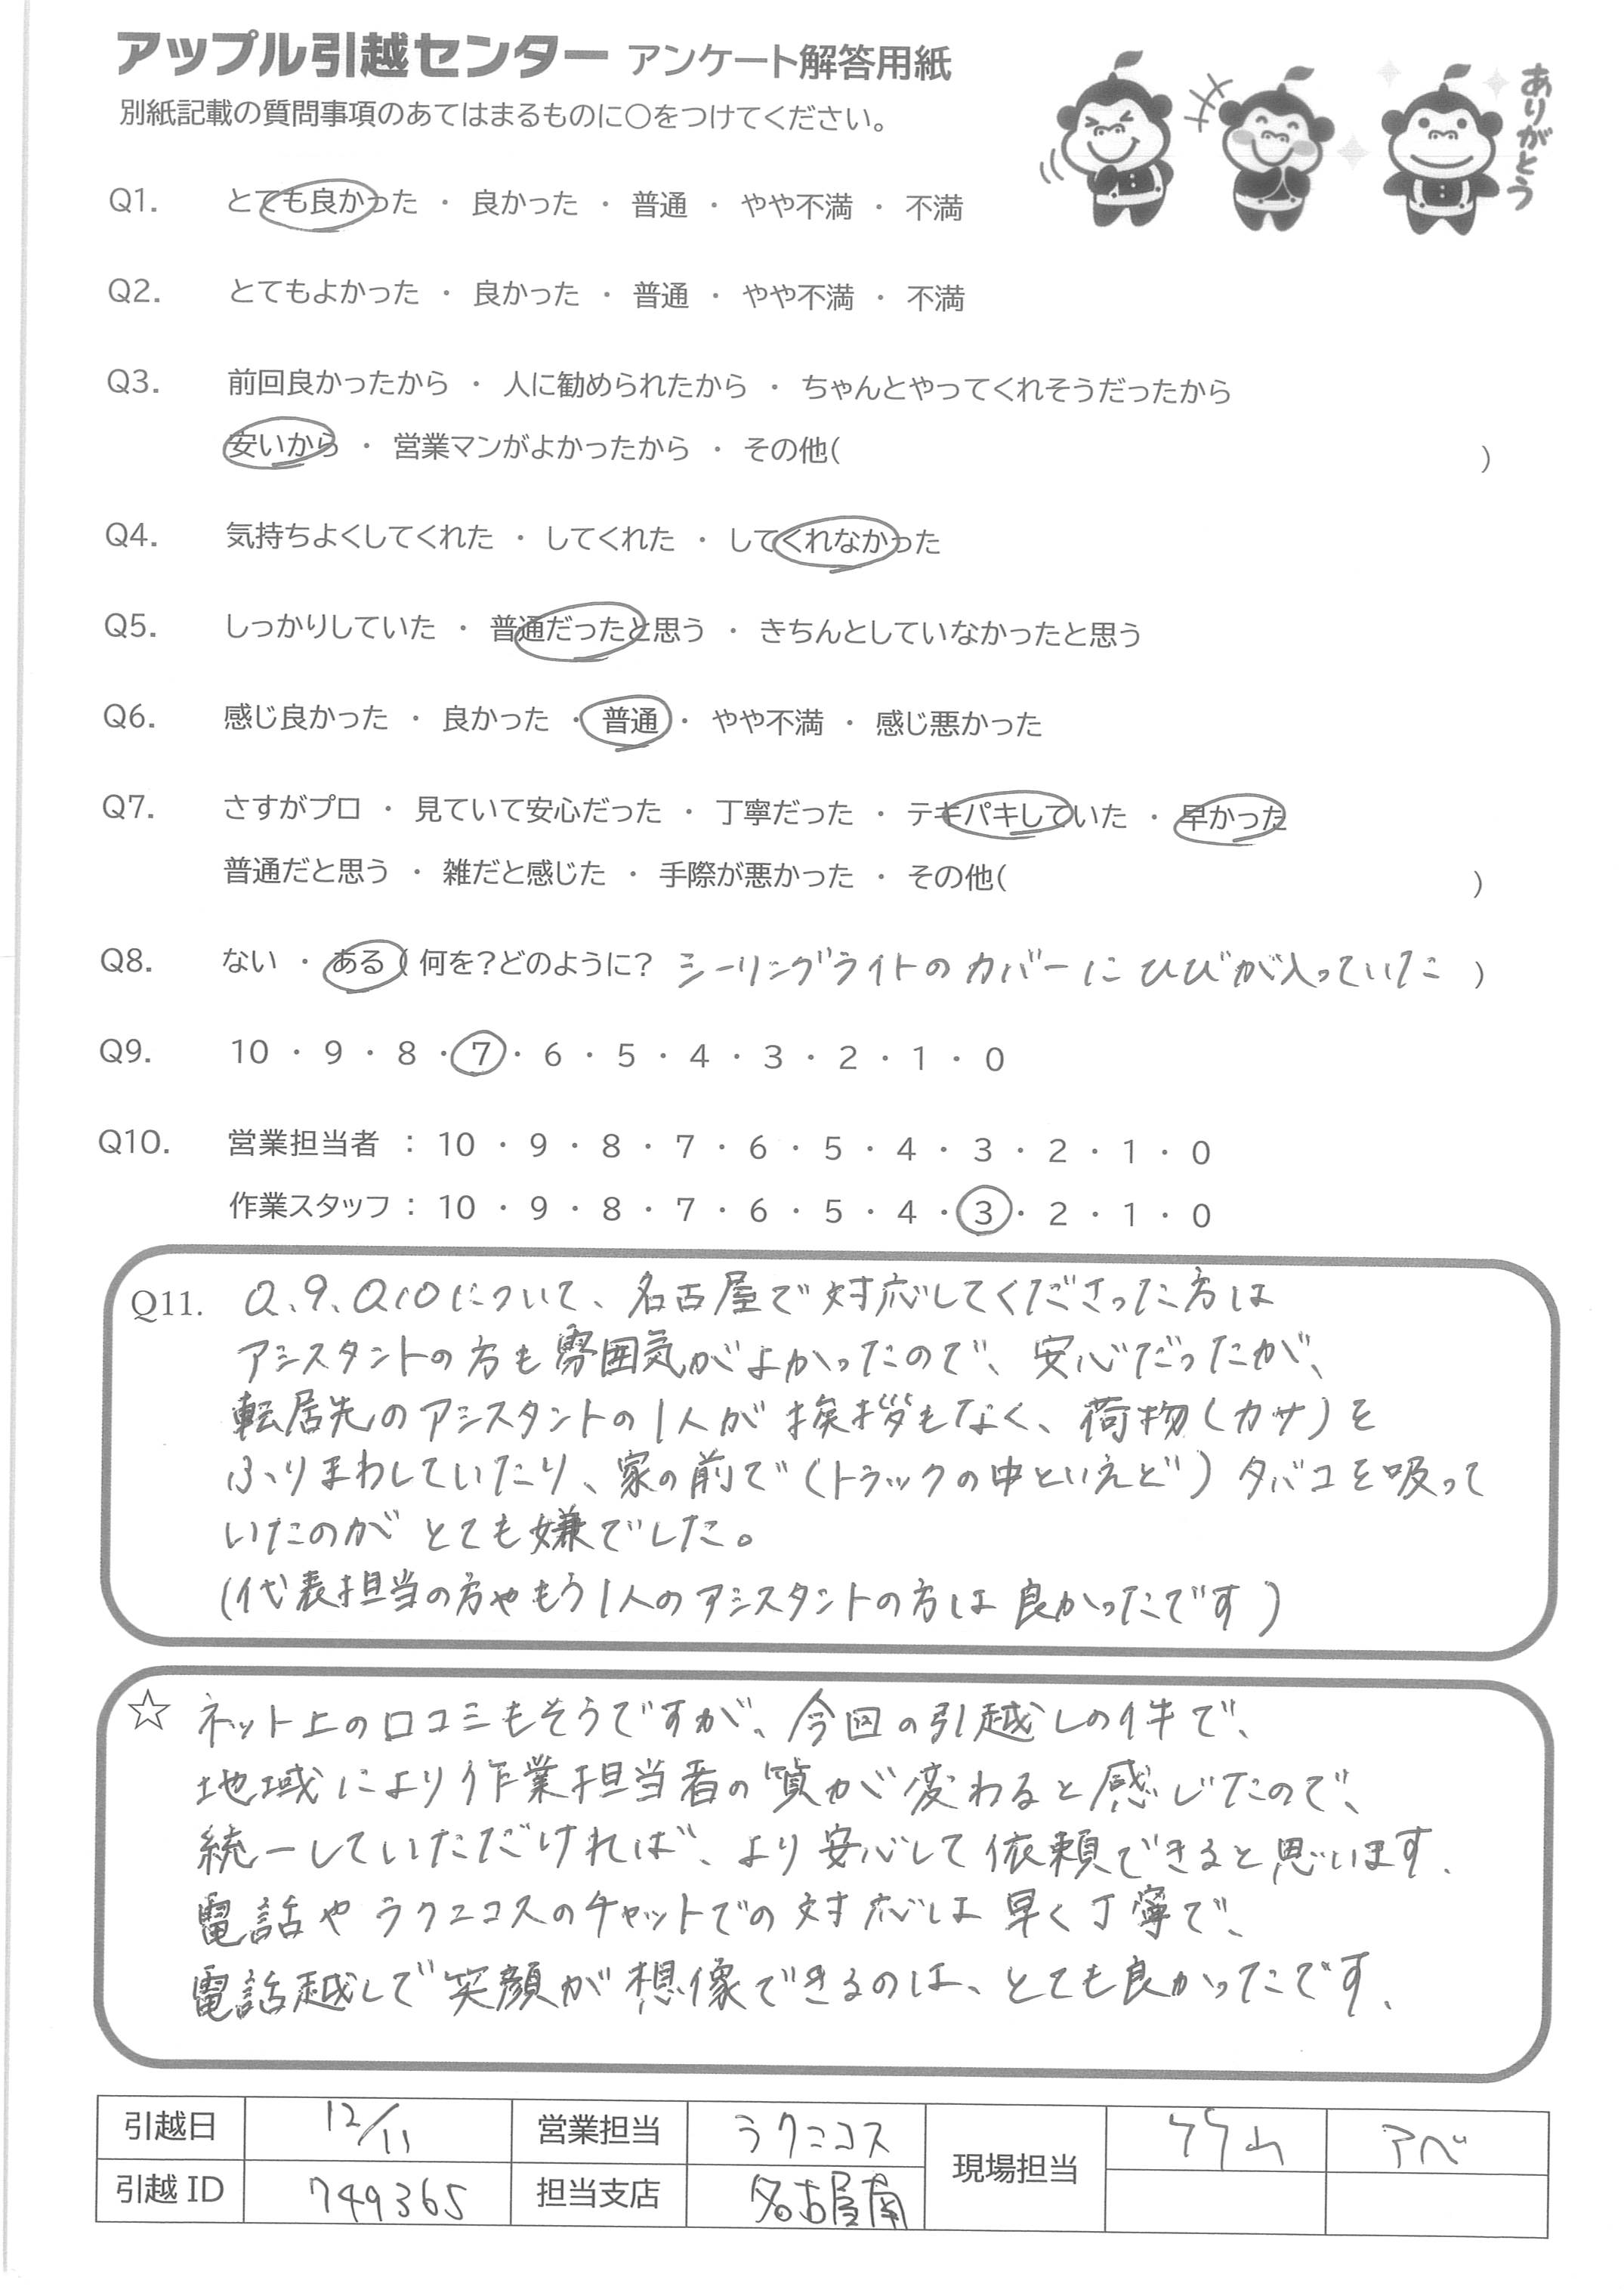 アップル引越センター アンケート解答用紙
別紙記載の質問事項のあてはまるものに〇をつけてください。
ありがとう
Q1. とても良かった ・ 良かった ・ 普通 ・ やや不満 ・ 不満
Q2. とてもよかった ・ 良かった ・ 普通 ・ やや不満 ・ 不満
Q3. 前回良かったから ・ 人に勧められたから ・ ちゃんとやってくれそうだったから
安いから ・ 営業マンがよかったから ・ その他( )
Q4. 気持ちよくしてくれた ・ してくれた ・ してくれなかった
Q5. しっかりしていた ・ 普通だったと思う ・ きちんとしていなかったと思う
Q6. 感じ良かった ・ 良かった ・ 普通 ・ やや不満 ・ 感じ悪かった
Q7. さすがプロ ・ 見ていて安心だった ・ 丁寧だった ・ テキパキしていた ・ 早かった
普通だと思う ・ 雑だと感じた ・ 手際が悪かった ・ その他( )
Q8. ない ・ ある ( 何を?どのように? シーリングライトのカバーにひびが入っていた )
Q9. 10 ・ 9 ・ 8 ・ 7 ・ 6 ・ 5 ・ 4 ・ 3 ・ 2 ・ 1 ・ 0
Q10. 営業担当者 : 10 ・ 9 ・ 8 ・ 7 ・ 6 ・ 5 ・ 4 ・ 3 ・ 2 ・ 1 ・ 0
作業スタッフ : 10 ・ 9 ・ 8 ・ 7 ・ 6 ・ 5 ・ 4 ・ 3 ・ 2 ・ 1 ・ 0
Q11. Q、9、Q10について、名古屋で対応してくださった方は
アシスタントの方も雰囲気がよかったので、安心だったが、
転居先のアシスタントの1人が挨拶もなく、荷物(カサ)を
ふりまわしていたり、家の前で(トラックの中といえど)タバコを吸って
いたのがとても嫌でした。
(代表担当の方やもう1人のアシスタントの方は良かったです)
☆ ネット上の口コミもそうですが、今回の引越しの件で、
地域により作業担当者の質が変わると感じたので、
統一していただければ、より安心して依頼できると思います.
電話やラクニコスのチャットでの対応は早く丁寧で、
電話越しで笑顔が想像できるのは、とても良かったです.
引越日 12/11 営業担当 ラクニコス 現場担当 アベ
引越ID 749365 担当支店 名古屋南